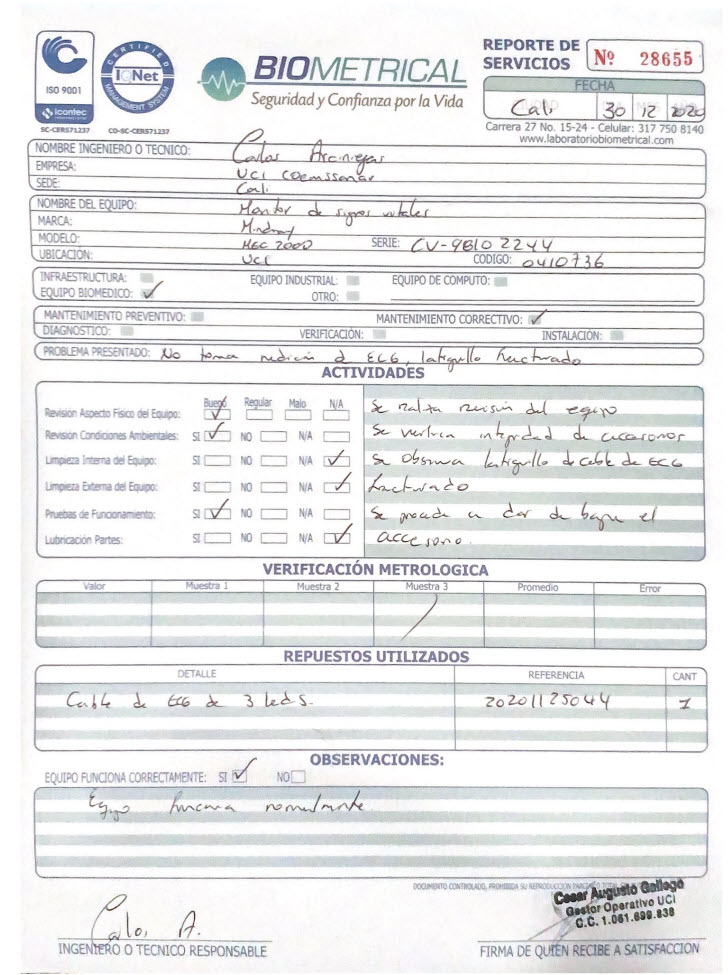 ISO 9001
icontec
SC-CER571237
CERTIFIED
IQNet
MANAGEMENT SYSTEM
CO-SC-CER571237
BIOMETRICAL
Seguridad y Confianza por la Vida
REPORTE DE SERVICIOS
Nº 28655
FECHA
Cali 30 12 2020
Carrera 27 No. 15-24 - Celular: 317 750 8140
www.laboratoriobiometrical.com
NOMBRE INGENIERO O TECNICO: Carlos Arciniegas
EMPRESA: UCI
SEDE: Cali
NOMBRE DEL EQUIPO: Monitor de signos vitales
MARCA: Mindray
MODELO: MEC 2000 SERIE: CV-9B10 2244
UBICACIÓN: UCI CODIGO: 0410736
INFRAESTRUCTURA: EQUIPO INDUSTRIAL: EQUIPO DE COMPUTO:
EQUIPO BIOMEDICO: ✓ OTRO:
MANTENIMIENTO PREVENTIVO: MANTENIMIENTO CORRECTIVO: ✓
DIAGNOSTICO: VERIFICACIÓN: INSTALACIÓN:
PROBLEMA PRESENTADO: No toma medición d ECG, latiguillo fracturado
ACTIVIDADES
Bueno Regular Malo N/A
Revisión Aspecto Físico del Equipo: ✓
Revisión Condiciones Ambientales: SI ✓ NO N/A
Limpieza Interna del Equipo: SI NO N/A ✓
Limpieza Externa del Equipo: SI NO N/A ✓
Pruebas de Funcionamiento: SI ✓ NO N/A
Lubricación Partes: SI NO N/A ✓
Se realiza revisión del equipo
Se verifica integridad de accesorios
Se observa latiguillo de cable de ECG
fracturado
Se procede a dar de baja el
accesorio.
VERIFICACIÓN METROLOGICA
Valor Muestra 1 Muestra 2 Muestra 3 Promedio Error
REPUESTOS UTILIZADOS
DETALLE REFERENCIA CANT
Cable de ECG de 3 leds. 20201125044 1
OBSERVACIONES:
EQUIPO FUNCIONA CORRECTAMENTE: SI ✓ NO
Equipo funciona normalmente
DOCUMENTO CONTROLADO, PROHIBIDA SU REPRODUCCION PARCIAL O TOTAL
Cesar Augusto Gallego
Gestor Operativo UCI
C.C. 1.061.699.838
Carlos A.
INGENIERO O TECNICO RESPONSABLE
FIRMA DE QUIEN RECIBE A SATISFACCION